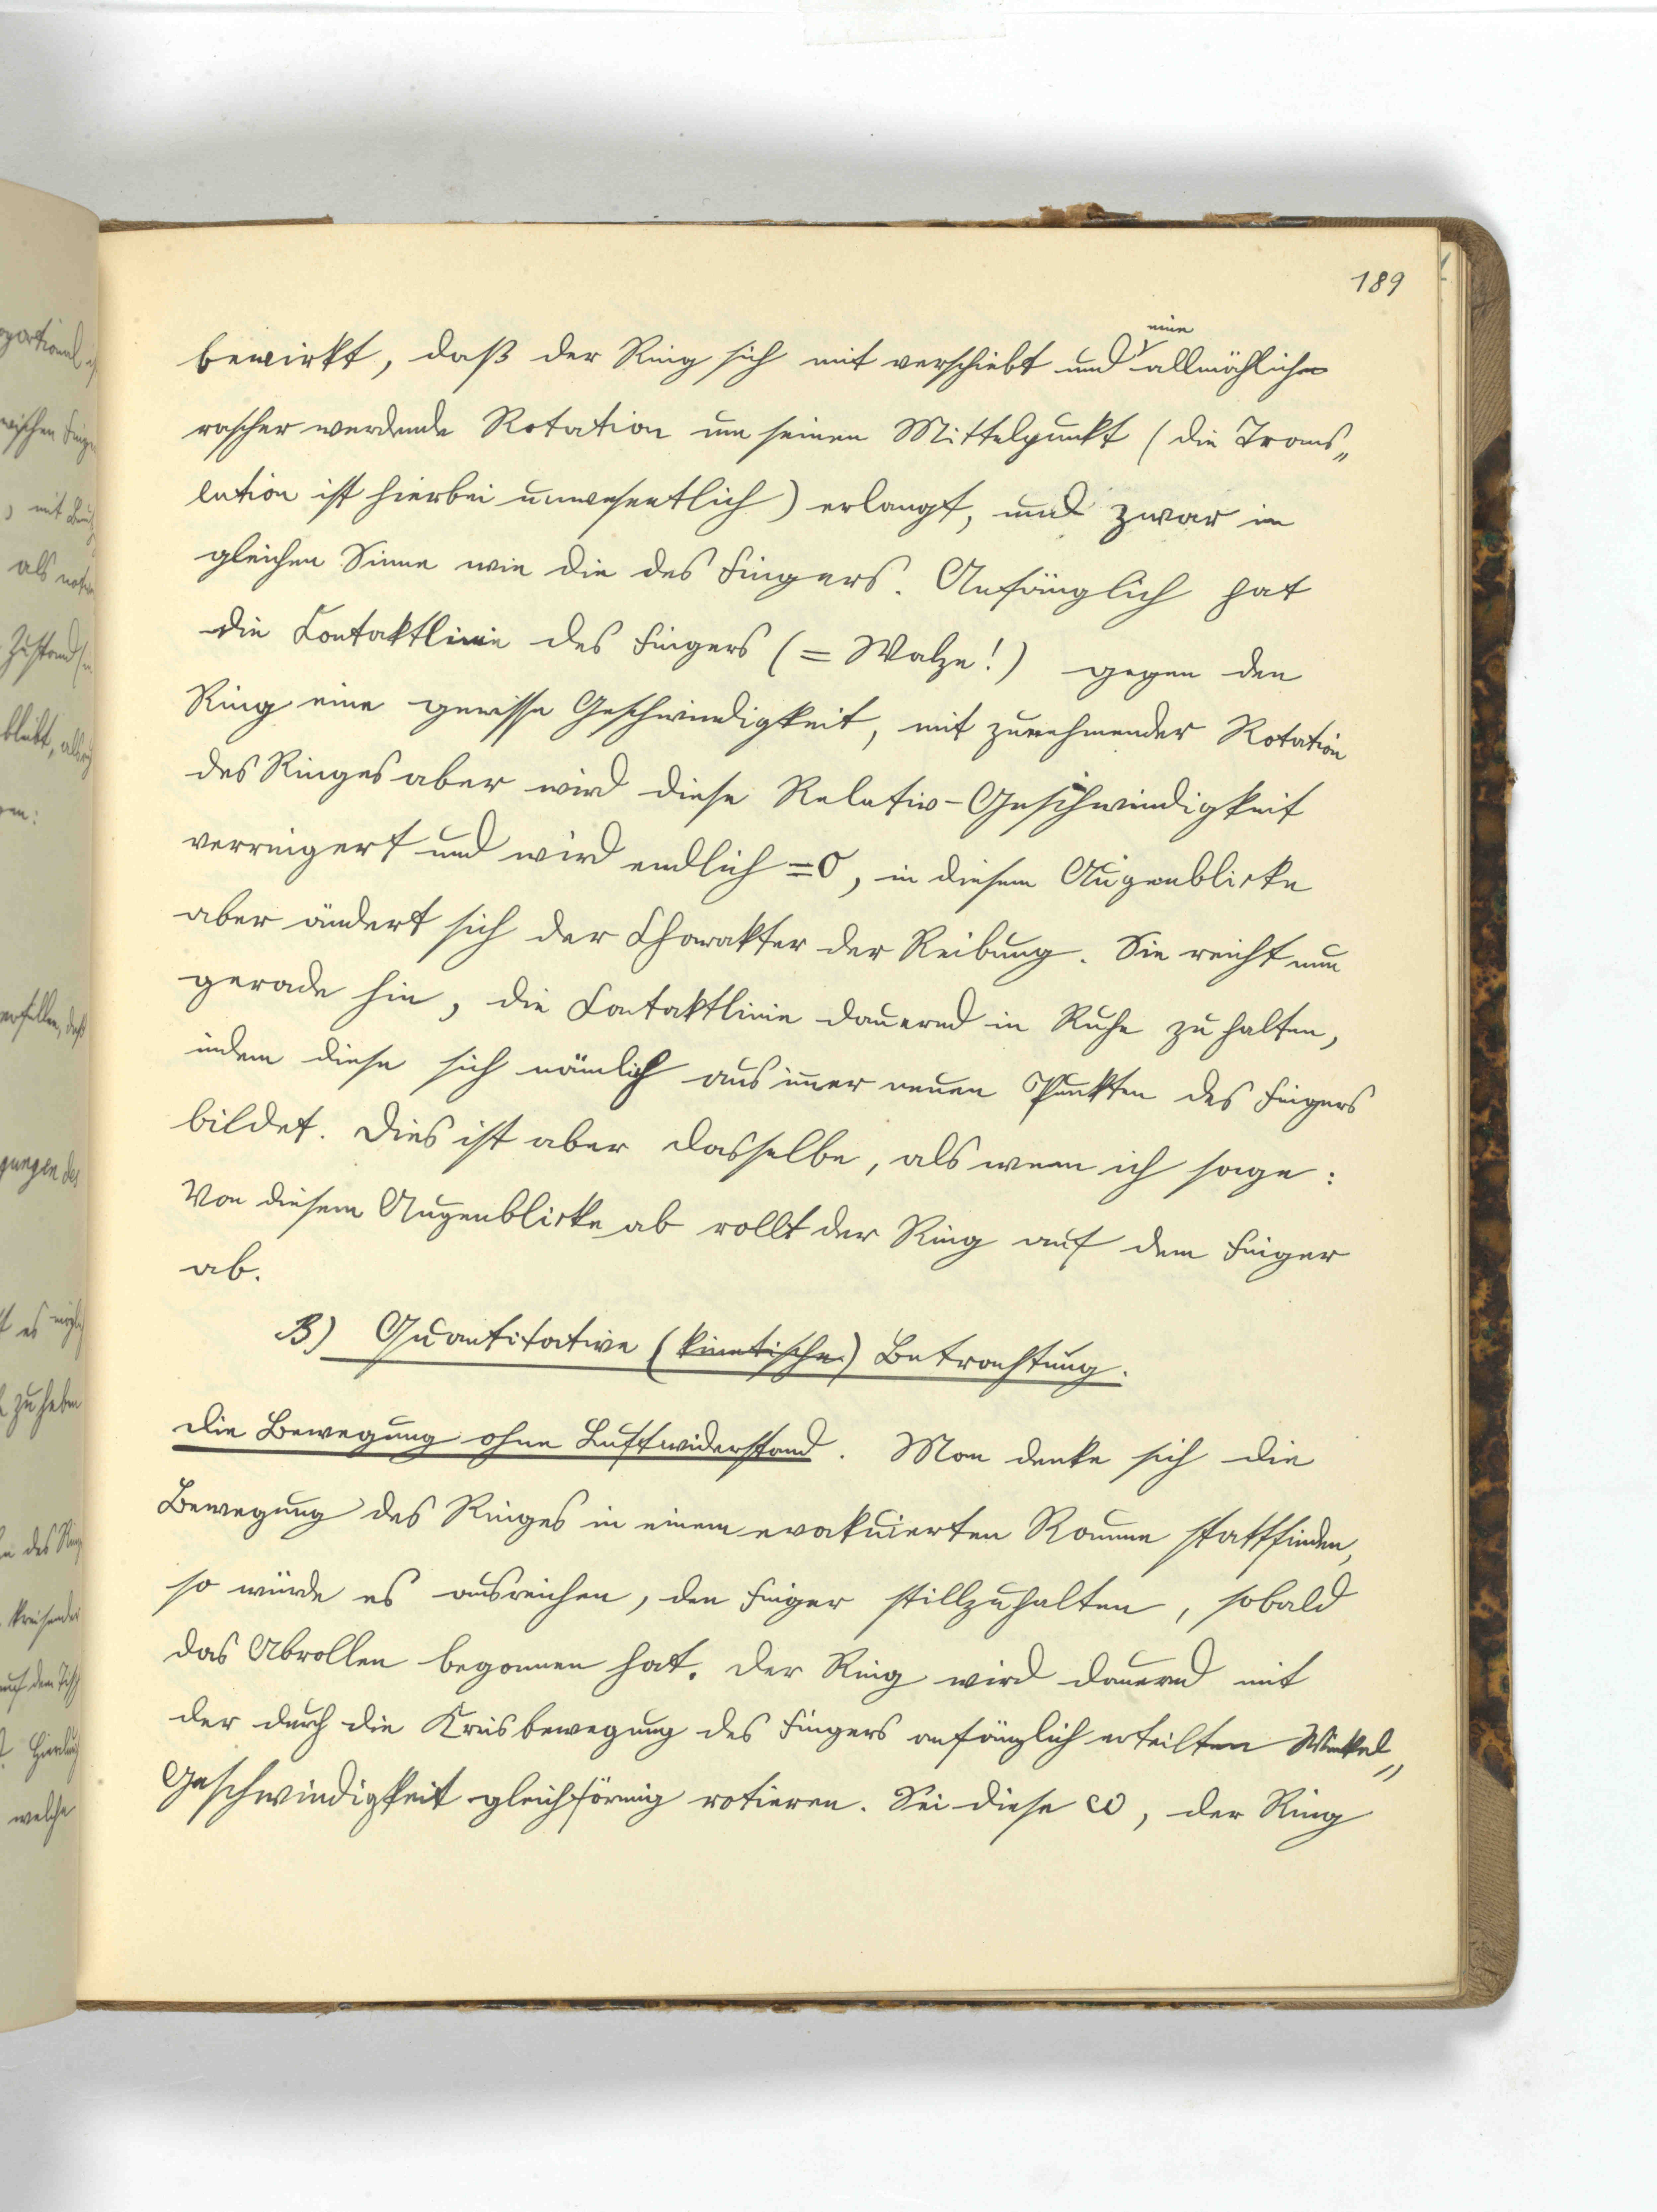 189
bewirkt, daß der Ring sich mit verschiebt und eine allmählich
rascher werdende Rotation um seinen Mittelpunkt (die Trans„
lation ist hierbei unwesentlich) erlangt, und zwar im
gleichen Sinne wie die des Fingers. Anfänglich hat
die Contaktlinie des Fingers (= Walze!) gegen den
Ring eine gewisse Geschwindigkeit, mit zunehmender Rotation
des Ringes aber wird diese Relativ-Geschwindigkeit
verringert und wird endlich = 0, in diesem Augenblicke
aber ändert sich der Charakter der Reibung. Sie reicht nun
gerade hin, die Contaktlinie dauernd in Ruhe zu halten,
indem diese sich nämlich aus im̅er neuen Punkten des Fingers
bildet. Dies ist aber dasselbe, als wenn ich sage:
Von diesem Augenblicke ab rollt der Ring auf dem Finger
ab.
B) Quantitative (kinetische) Betrachtung.
Die Bewegung ohne Luftwiderstand. Man denke sich die
Bewegung des Ringes in einem evakuierten Raume stattfinden,
so würde es ausreichen, den Finger stillzuhalten, sobald
das Abrollen begonnen hat. Der Ring wird dauernd mit
der durch die Kreisbewegung des Fingers anfänglich erteilten Winkel„
Geschwindigkeit gleichförmig rotieren. Sei diese ω, der Ring